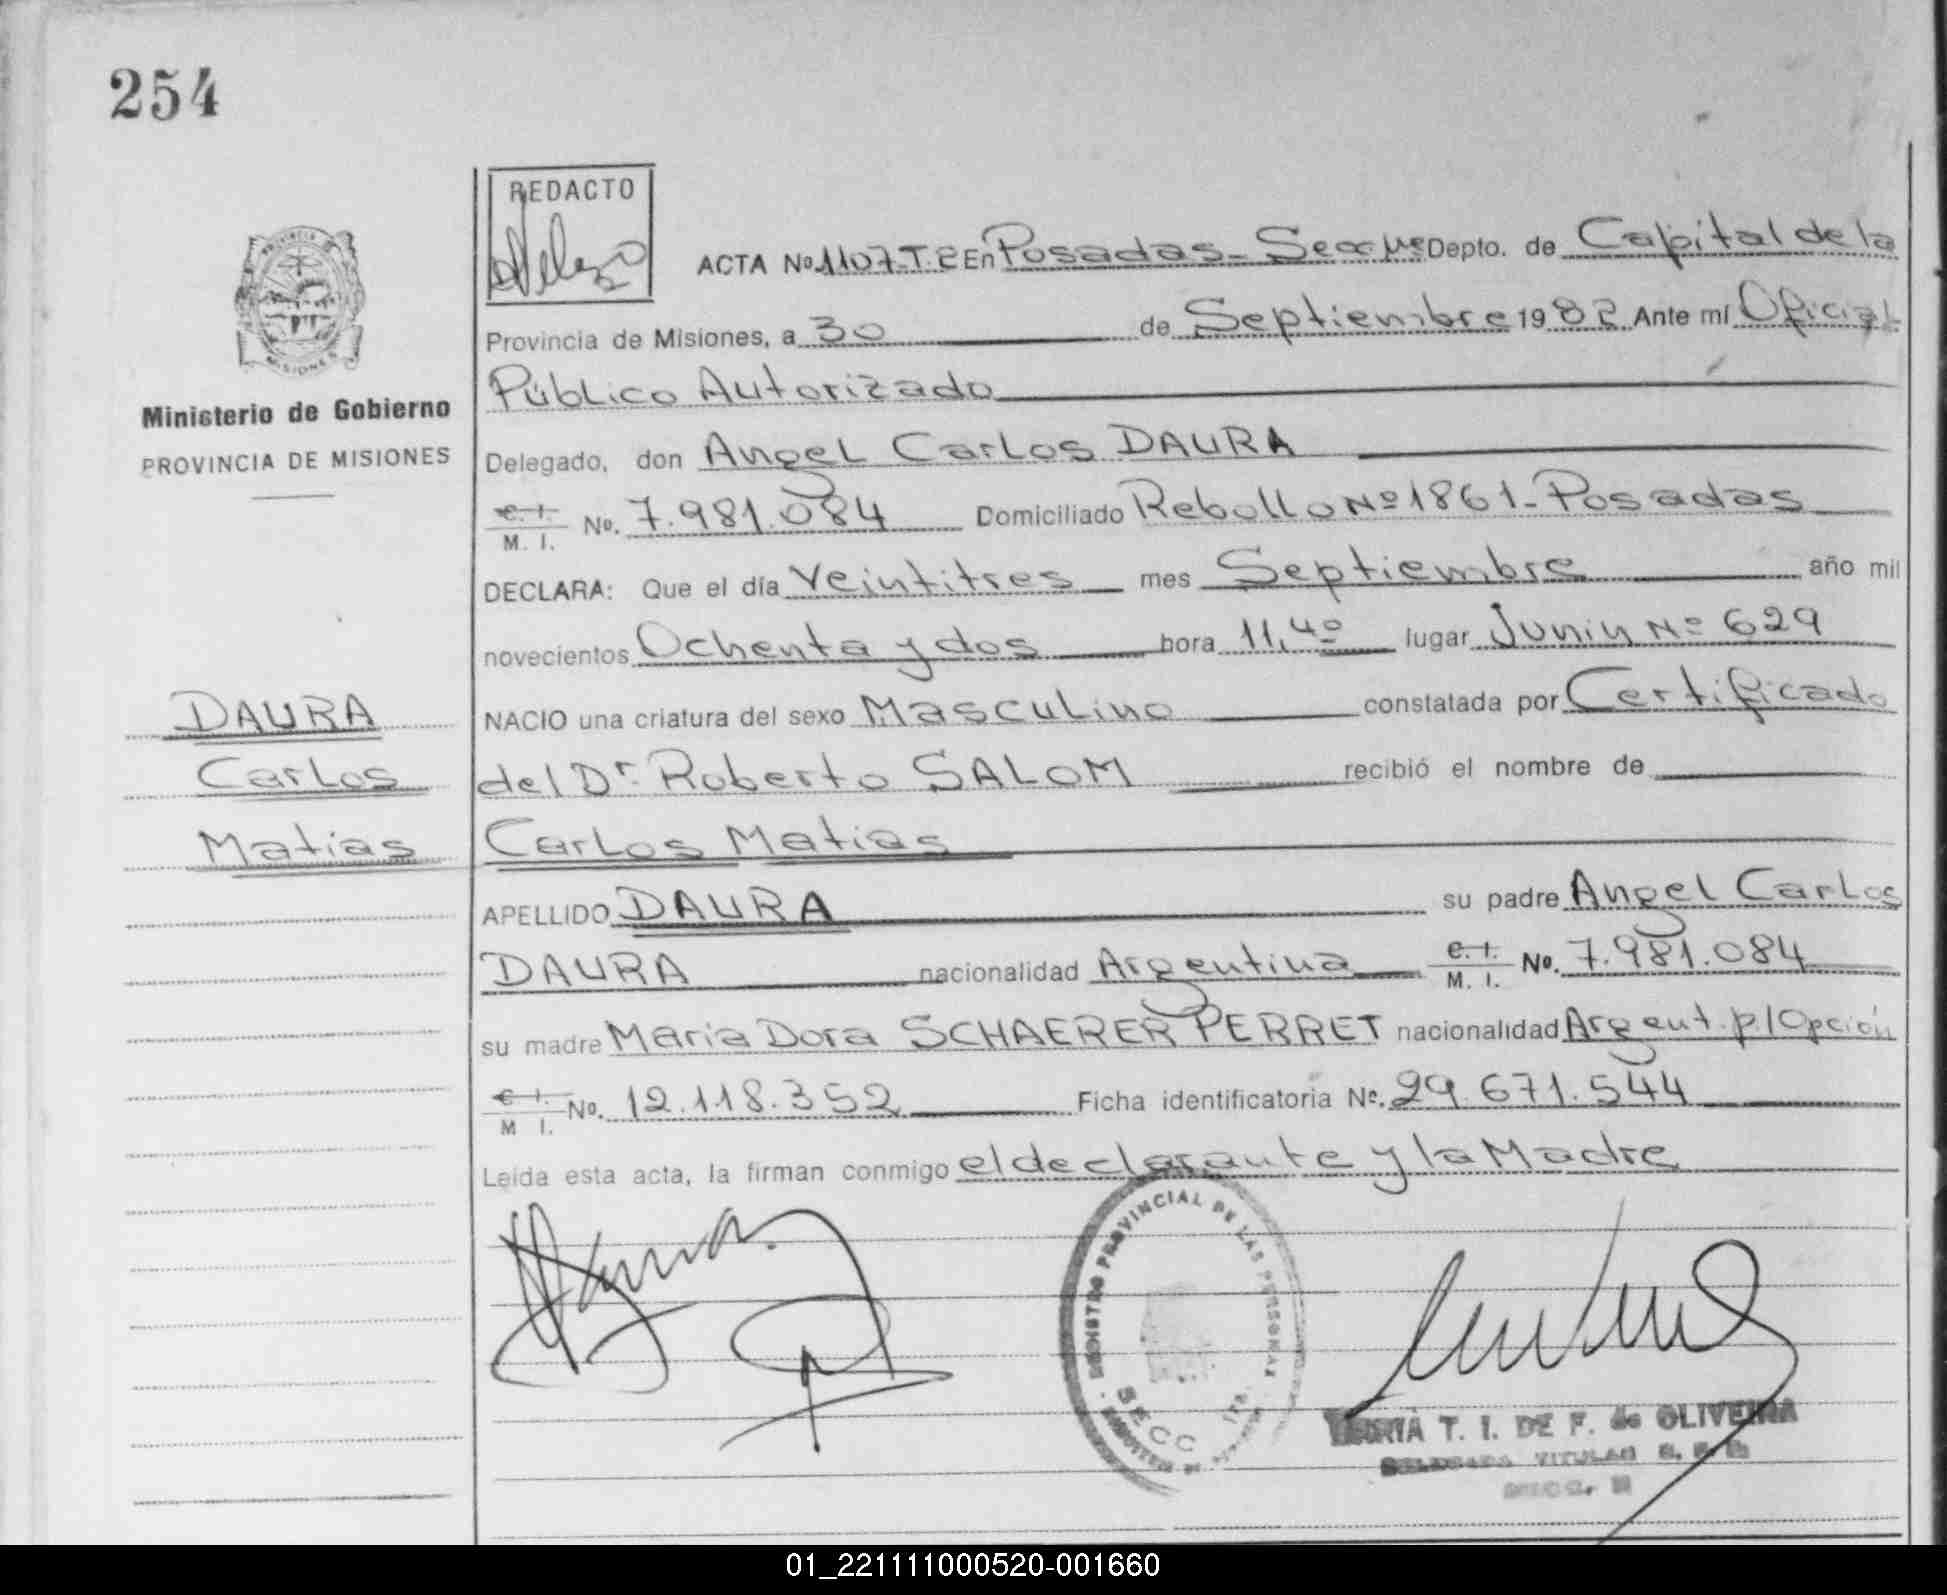 254
REDACTO
PROVINCIA DE MISIONES
Ministerio de Gobierno
PROVINCIA DE MISIONES
ACTA No 1107-T.2 En Posadas - Depto. de Capital de la
Provincia de Misiones, a 30 de Septiembre 1982 Ante mí Oficial
Público Autorizado
Delegado, don Angel Carlos DAURA
C. I. M. I. No. 7.981.084 Domiciliado Rebollo Nº 1861 - Posadas
DECLARA: Que el día Veintitres mes Septiembre año mil
novecientos Ochenta y dos hora 11,40 lugar Junin Nº 629
NACIO una criatura del sexo Masculino constatada por Certificado
del Dr. Roberto SALOM recibió el nombre de
Carlos Matias
APELLIDO DAURA su padre Angel Carlos
DAURA nacionalidad Argentina C. I. M. I. No. 7.981.084
su madre Maria Dora SCHAERER PERRET nacionalidad Argent. p/Opción
C. I. M. I. No. 12.118.352 Ficha identificatoria No. 29.671.544
Leída esta acta, la firman conmigo el declarante y la Madre
DAURA
Carlos
Matías
REGISTRO PROVINCIAL DE LAS PERSONAS
SECC
T. I. DE F. de OLIVEIRA
TITULAR
01_221111000520-001660